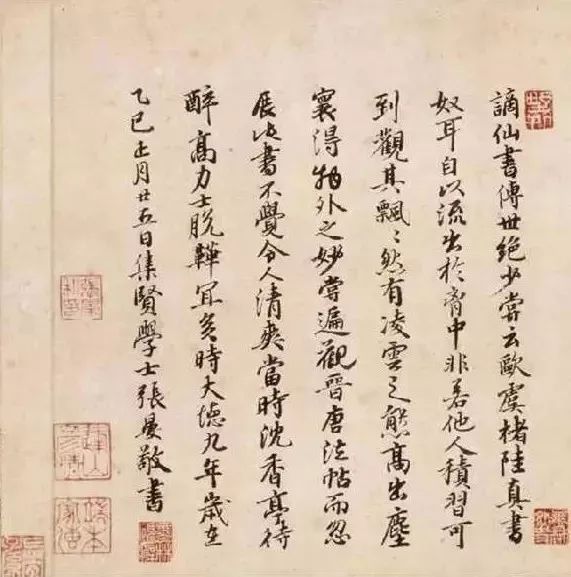 謫仙書傳世絶少嘗云歐虞褚陸真書
奴耳自以流出於胷中非若他人積習可
到觀其飄〻然有凌雲之態高出塵
寰得物外之妙嘗遍觀晉唐法帖而忽
展此書不覺令人清爽當時沈香亭待
醉高力士脱鞾宜矣時大德九年歲在
乙巳正月廿五日集賢學士張晏敬書